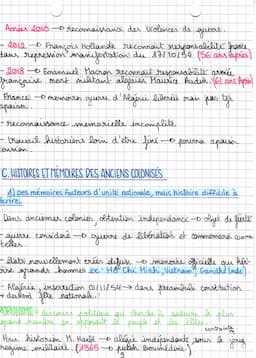 Années 2010 → reconnaissance des violences de guerre.
- 2012 → François Hollande reconnait responsabilité
dans répression manifestation du 17/10/54 (56 ans après)
- 2018 → Emmanuel Macron reconnait responsabilité armée
française mort militant algérien Maurice Audin. (61 ans après)
France → mémoires guerre d'Algérie
- reconnaissance mémorielle incomplète.
- travail historiens loin d'être fini → pourra apaiser
C. HISTOIRES ET MÉMOIRES DES ANCIENS COLONISÉS
1) Des mémoires facteurs d'unité nationale, mais histoire difficile à
écrire.
- Dans anciennes colonies, obtention indépendance → objet de fierté
- guerre considéré → guerre de libération et commémoré comme
telles
- États nouvellement créés diffusent → mémoire officielle qui
grands hommes ex: Hô Chi Minh, Vietnam, Gandhi Inde).
- Algérie, insurrection 01/11/54 → dans préambule constitution
→ devient fête nationale.
POPULISME: discours politique qui cherche à séduire le plus
grand nombre en opposant le peuple et les élites
Pour historien M. Harbi → Algérie indépendante sous le joug
régime militaire (1965 → putsch Boumédiène)